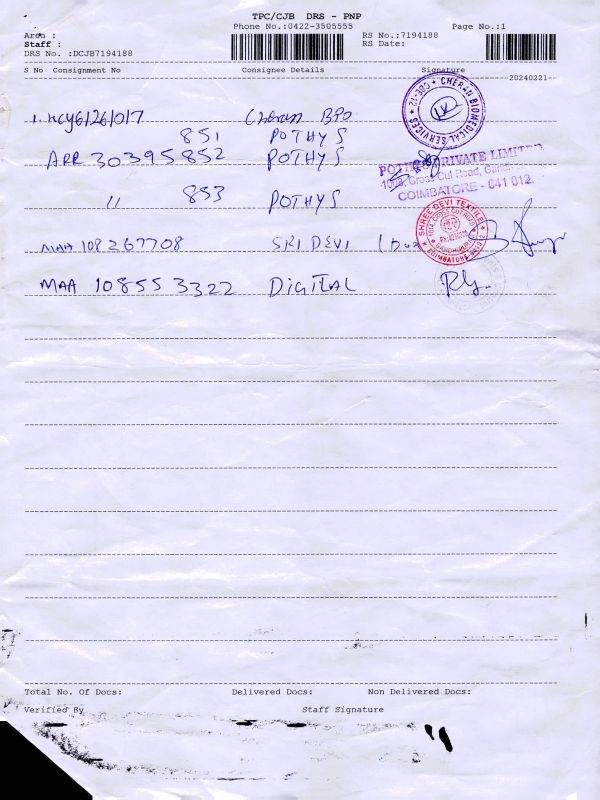 TPC/CJB DRS - PNP
Phone No.:0422-3505555 Page No.:1
Area : RS No.:7194188
Staff : RS Date:
DRS No. :DCJB7194188
S No Consignment No Consignee Details Signature
20240221
CHERAN BIOMEDICAL SERVICES * CBE-12 *
1. KCY61261017 Cheran BPO
851 POTHYS
ARR 30395852 POTHYS
POTHYS PRIVATE LIMITED
Cross Cut Road,
COIMBATORE - 641 012.
" 853 POTHYS
SHREE DEVI TEXTILE
MAA 108267708 SRI DEVI
MAA 108553322 DIGITAL
Total No. Of Docs: Delivered Docs: Non Delivered Docs:
Verified By Staff Signature